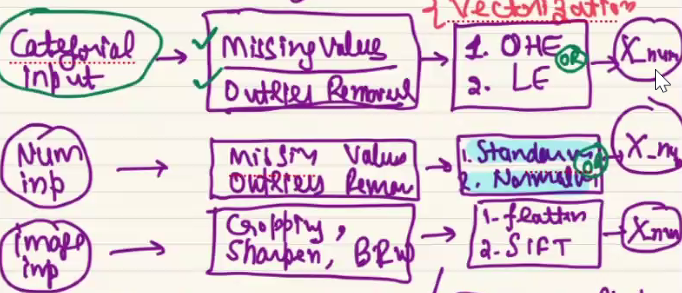 {Vectorization
Categorial
input
Missing Values
Outlies Removal
1. OHE
OR
2. LE
X_num
Num
inp
Missin Value
Outlies Remov
1. Standar
OR
2. Normal
X_nu
image
inp
Cropping,
Sharpen, BRW
1- flatten
2- SIFT
X_num